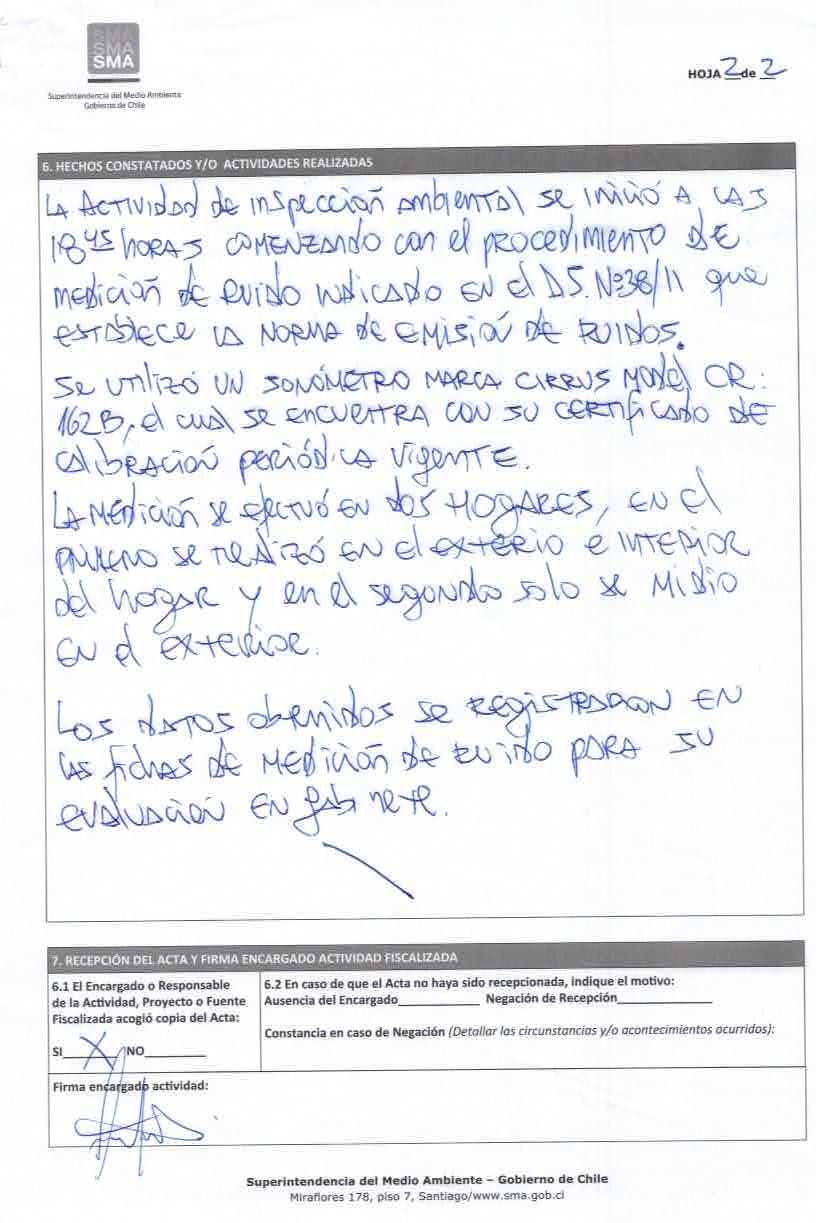 SMA
SMA
SMA
Superintendencia del Medio Ambiente
Gobierno de Chile
HOJA 2 de 2
6. HECHOS CONSTATADOS Y/O ACTIVIDADES REALIZADAS
LA ACTIVIDAD de inspección AMBIENTAL se inició A LAS
18 45 HORAS COMENZANDO con el PROCEDIMIENTO DE
MEDICIÓN de RUIDO INDICADO EN el D.S. Nº38/11 que
ESTABLECE LA NORMA DE EMISIÓN DE RUIDOS.
Se UTILIZÓ UN SONÓMETRO MARCA CIRRUS Model CR:
162B, el cual se encuentra con su CERTIFICADO DE
CALIBRACIÓN periódica Vigente.
LA MEDICIÓN se efectuó en DOS HOGARES, EN el
PRIMERO se realizó EN el exterio e INTERIOR
del hogar y en el segundo solo se MIDIO
EN el exterior.
Los DATOS obtenidos se REGISTRARON EN
LAS fichas de MEDICIÓN de RUIDO PARA SU
EVALUACIÓN EN gabinete.
7. RECEPCIÓN DEL ACTA Y FIRMA ENCARGADO ACTIVIDAD FISCALIZADA
6.1 El Encargado o Responsable
de la Actividad, Proyecto o Fuente
Fiscalizada acogió copia del Acta:
SI X NO
6.2 En caso de que el Acta no haya sido recepcionada, indique el motivo:
Ausencia del Encargado Negación de Recepción
Constancia en caso de Negación (Detallar las circunstancias y/o acontecimientos ocurridos):
Firma encargado actividad:
Superintendencia del Medio Ambiente – Gobierno de Chile
Miraflores 178, piso 7, Santiago/www.sma.gob.cl